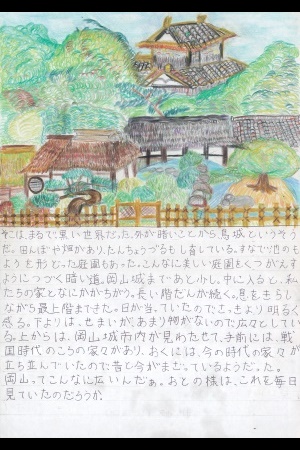 そこはまるで黒い世界だった。外が暗いことから、烏城というそう
だ。田んぼや畑があり、たんちょうづるも し育している。すなで池のも
ようを形どった庭園もあった。こんなに美しい庭園をくつがえす
ようにつづく暗い道。岡山城まであと少し。中に入ると、私
たちの家となにかがちがう。長い階だんが続く。息をきらし
ながら最上階まできた。日が当っていたのでさっきより明るく
感る。下よりは、せまいが、あまり物がないので広々としてい
る。上からは、岡山城市内が見わたせて、手前には、戦
国時代のころの家々があり、おくには、今の時代の家々が
立ち並んでいたので昔と今がまざっているようだった。
岡山ってこんなに広いんだぁ。あとの様は、これを毎日
見ていたのだろうか。